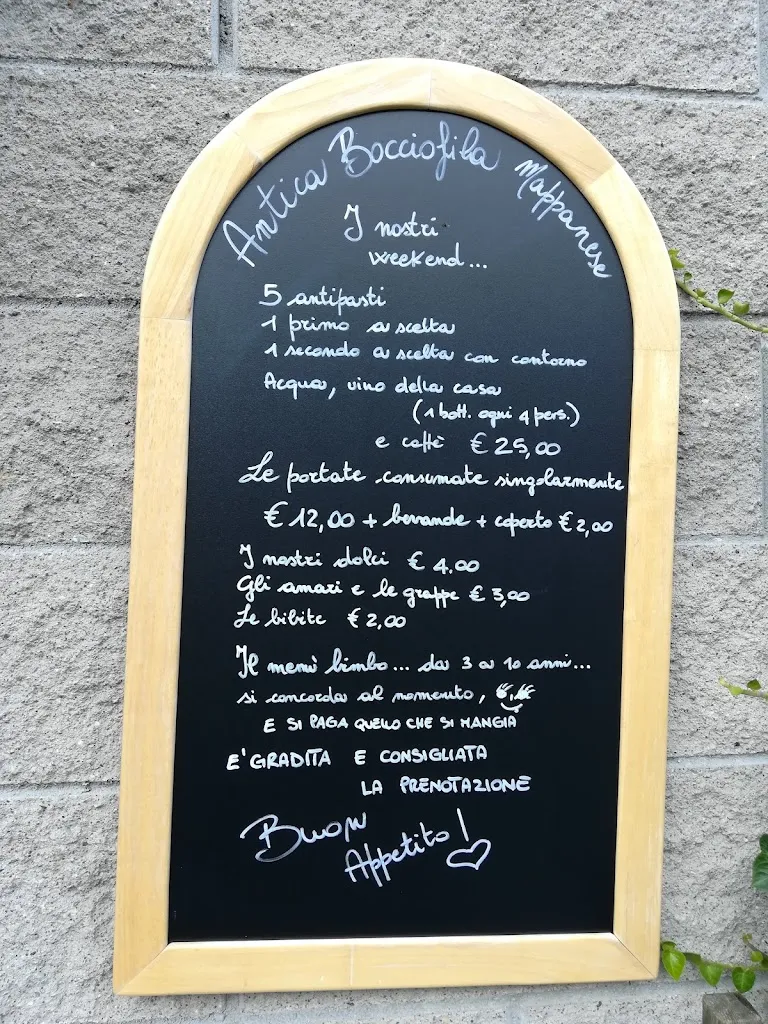 Antica Bocciofila Mappanese
I nostri
weekend...
5 antipasti
1 primo a scelta
1 secondo a scelta con contorno
Acqua, vino della casa
(1 bott. ogni 4 pers.)
e caffè € 25,00
Le portate consumate singolarmente
€ 12,00 + bevande + coperto € 2,00
I nostri dolci € 4.00
Gli amari e le grappe € 3,00
Le bibite € 2,00
Il menù bimbo... da 3 a 10 anni...
si concorda al momento,
E SI PAGA QUELLO CHE SI MANGIA
E' GRADITA E CONSIGLIATA
LA PRENOTAZIONE
Buon
Appetito!